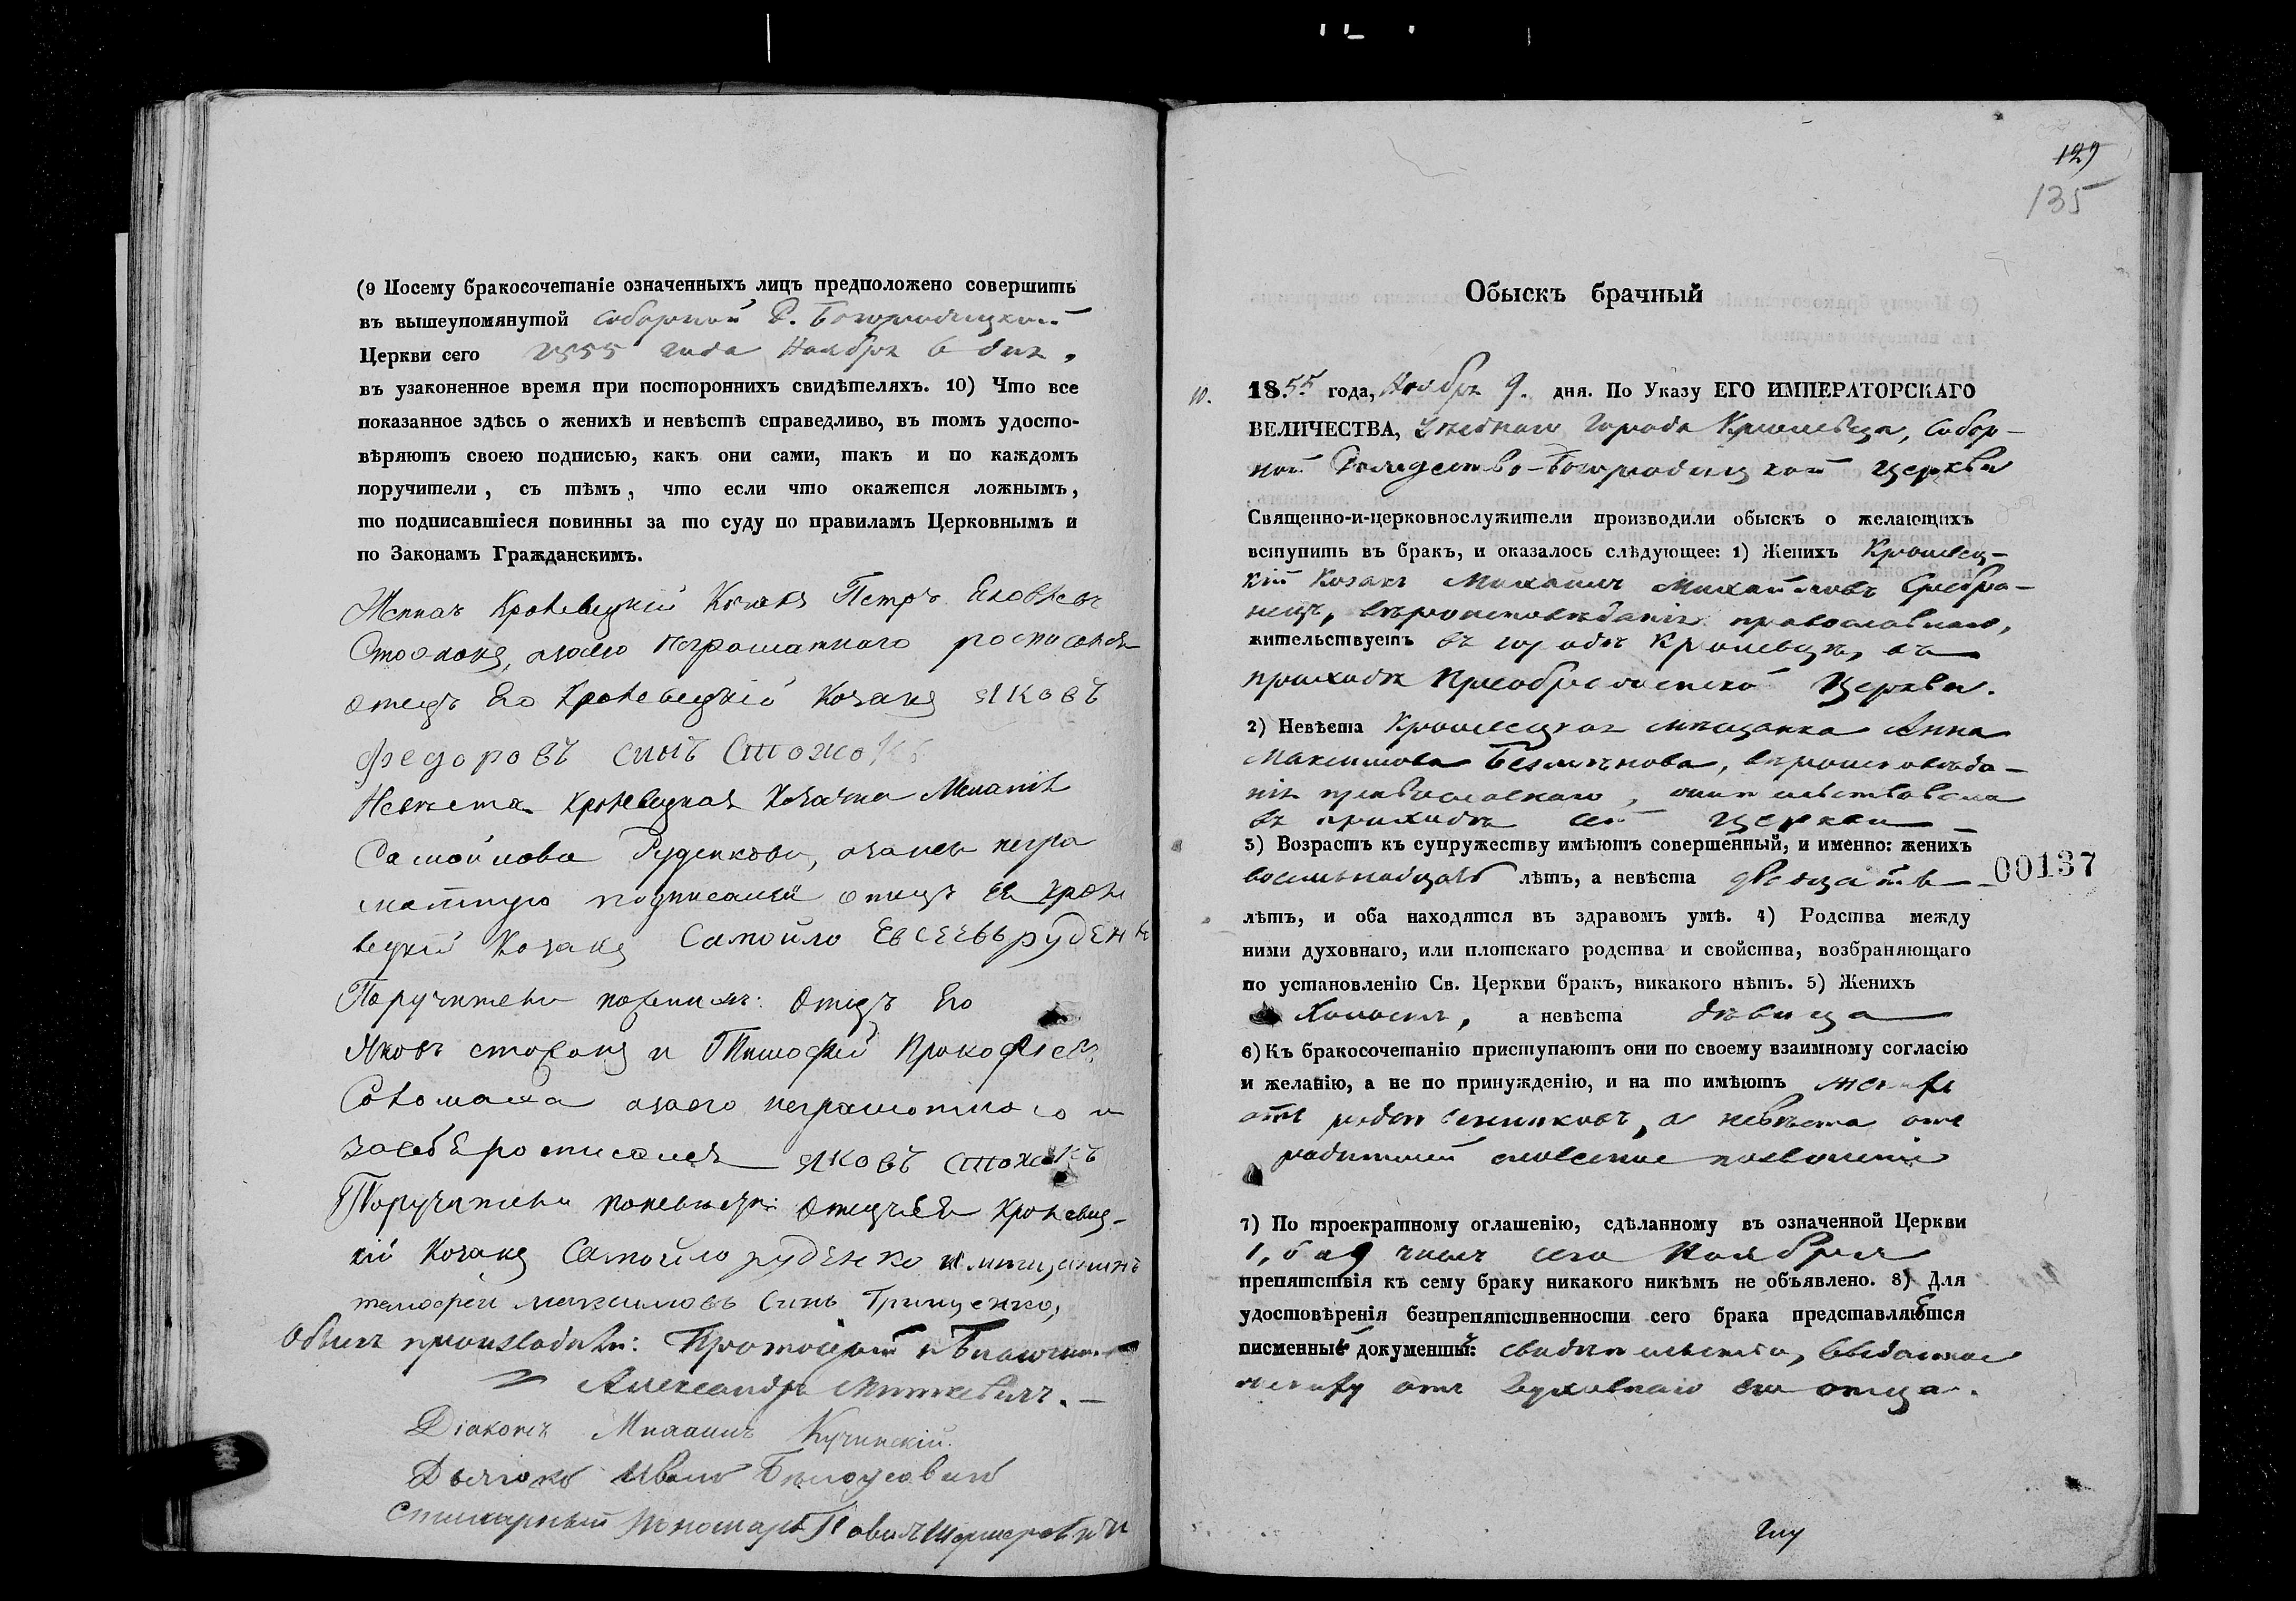 (9 Посему бракосочетаніе означенныхъ лицъ предположено совершить
въ вышеупомянутой Соборной Р. Богородицкой
Церкви сего 1855 года Ноября 6 дня.
въ узаконенное время при постороннихъ свидѣтеляхъ. 10) Что все
показанное здѣсь о женихѣ и невѣстѣ справедливо, въ томъ удосто-
вѣряютъ своею подписью, какъ они сами, такъ и по каждомъ
поручители, съ тѣмъ, что если что окажется ложнымъ,
то подписавшіеся повинны за то суду по правиламъ Церковнымъ и
по Законамъ Гражданскимъ.
Женихъ Кролевецкій Козакъ Петръ Яковлевъ
неграмотнаго росписался
отецъ Его Кролевецкій Козакъ Яковъ
Федоровъ сынъ
Невѣста Кролевецкая Козачка Меланія
Самойлова Руденкова, а за нея негра
мотную подписался отецъ Ея Кроле
вецкій Козакъ Самойло Евсеевъ руденк
Поручители по женихѣ: Отецъ Его
Яковъ и Тимофей Прокофіевъ
неграмотнаго и
за себя росписался Яковъ
Поручители по невѣстѣ: Отецъ Ея Кролевец-
кій Козакъ Самойло руденко и мѣщанинъ
тимофей максимовъ Синъ Грищенко,
Обыскъ производили: Протоіерей и Благочин.
Александръ Миткевичъ.
Діаконъ Михаилъ Кучинскій.
Дьячокъ Иванъ Бѣлоусовичъ
Стихарный Пономарь Павелъ
129
135
Обыскъ брачный
10. 1855 года, Ноября 9. дня. По Указу ЕГО ИМПЕРАТОРСКАГО
ВЕЛИЧЕСТВА, Уѣзднаго Города Кролевца, Собор-
ной Рождество-Богородицкой Церкви
Священно-и-церковнослужители производили обыскъ о желающихъ
вступить въ бракъ, и оказалось слѣдующее: 1) Женихъ Кролевец-
кій Козакъ Михаилъ Михайловъ Сребра-
нецъ, вѣроисповѣданія православнаго,
жительствуетъ въ городѣ Кролевцѣ, въ
приходѣ Преображенской Церкви.
2) Невѣста Кролевецкая мѣщанка Анна
Максимова вѣроисповѣда-
нія православнаго, жительствовала
въ приходѣ сей Церкви
3) Возрастъ къ супружеству имѣютъ совершенный, и именно: женихъ
восемьнадцать лѣтъ, а невѣста двадцать
00137
лѣтъ, и оба находятся въ здравомъ умѣ. 4) Родства между
ними духовнаго, или плотскаго родства и свойства, возбраняющаго
по установленію Св. Церкви бракъ, никакого нѣтъ. 5) Женихъ
Холостъ, а невѣста дѣвица
6) Къ бракосочетанію приступаютъ они по своему взаимному согласію
и желанію, а не по принужденію, и на то имѣютъ женихъ
отъ родственниковъ, а невѣста отъ
родителей словесное позволеніе
7) По троекратному оглашенію, сдѣланному въ означенной Церкви
1, 6 и 9 числъ сего Ноября
препятствія къ сему браку никакого никѣмъ не объявлено. 8) Для
удостовѣренія безпрепятственности сего брака представляется
писменный документъ: свидѣтельство, выданное
жениху отъ Духовнаго его отца.